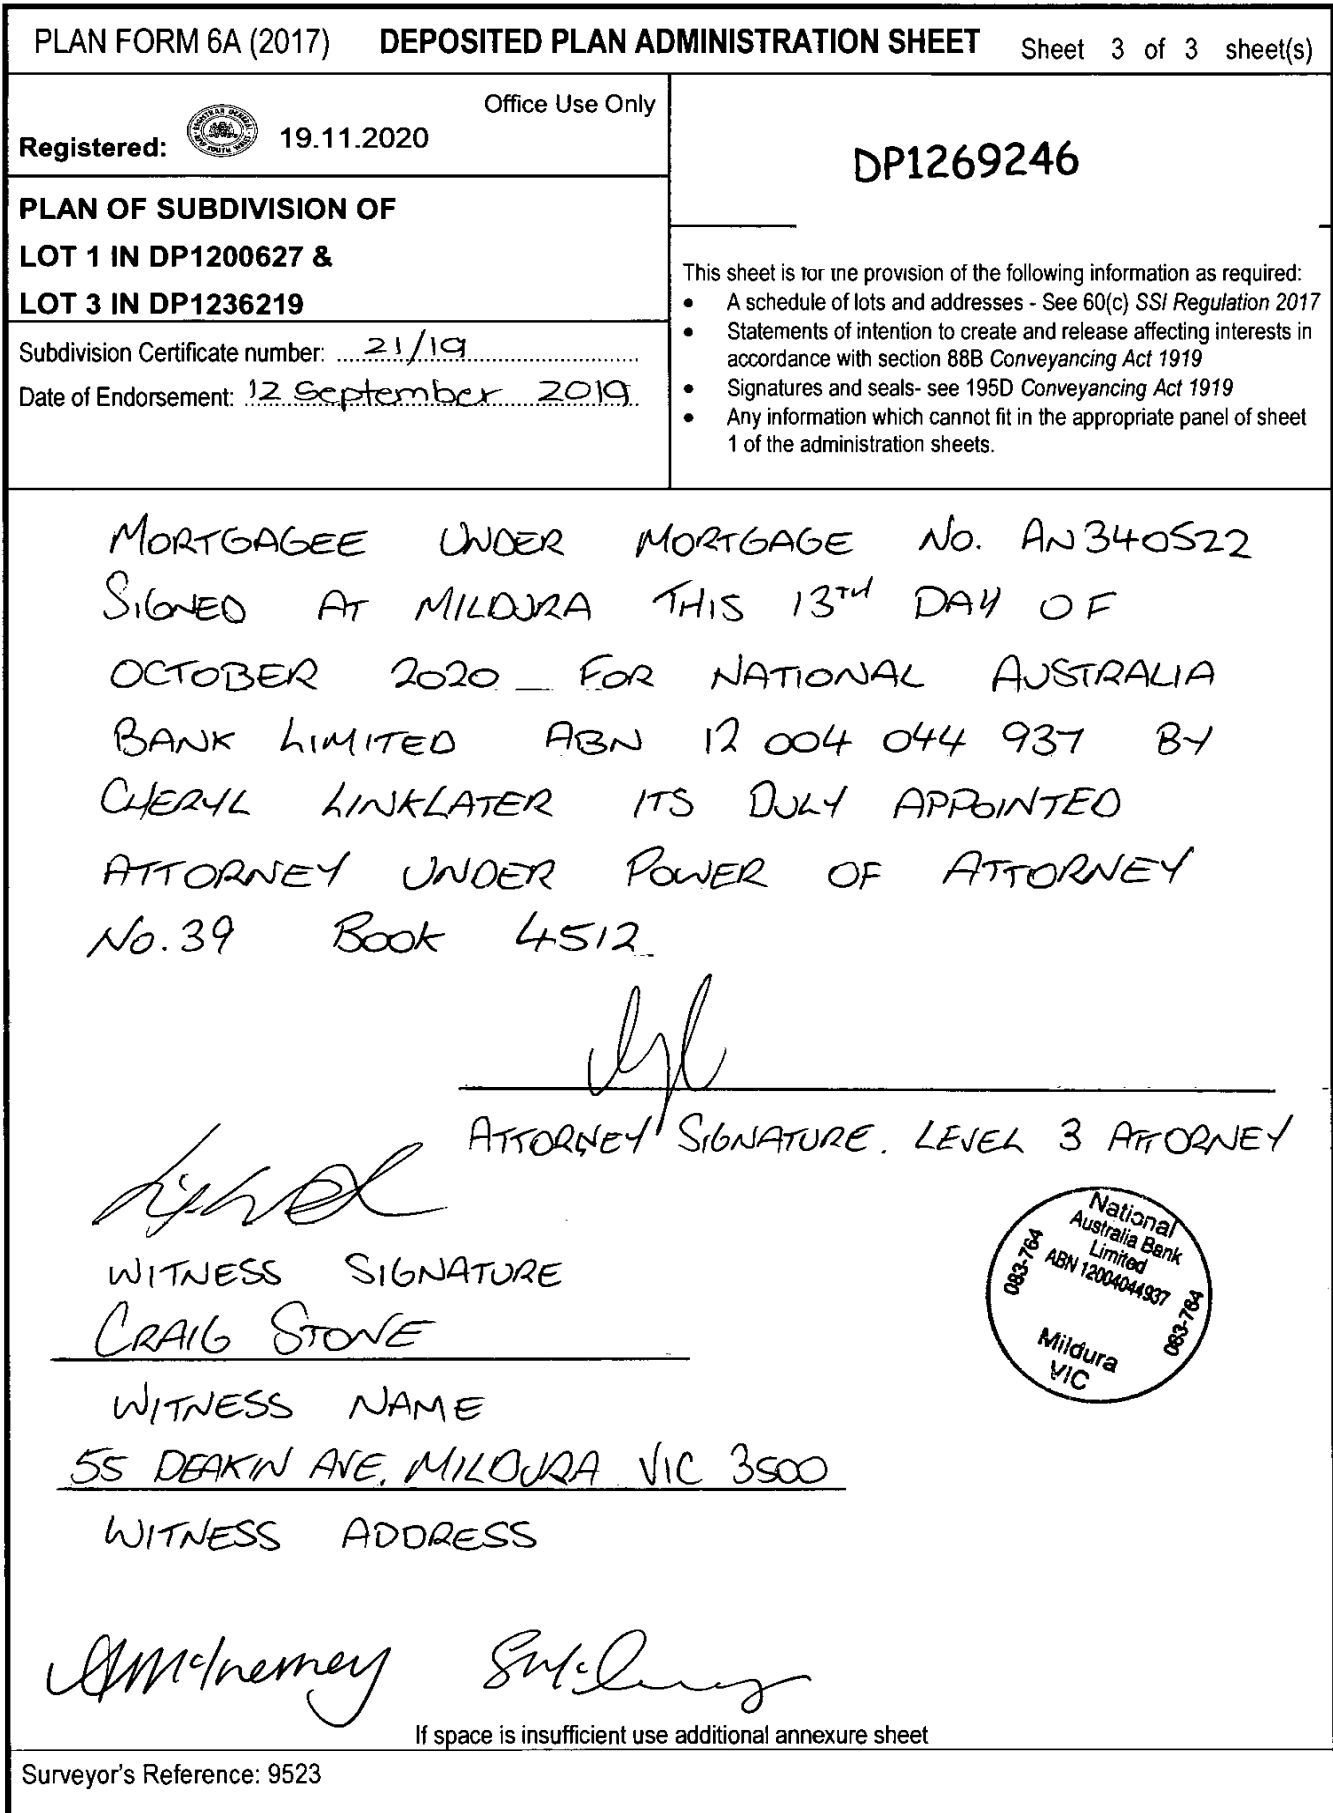 PLAN FORM 6A (2017) DEPOSITED PLAN ADMINISTRATION SHEET Sheet 3 of 3 sheet(s)
Office Use Only
Registered: 19.11.2020
DP1269246
PLAN OF SUBDIVISION OF
LOT 1 IN DP1200627 &
LOT 3 IN DP1236219
This sheet is for the provision of the following information as required:
• A schedule of lots and addresses - See 60(c) SSI Regulation 2017
• Statements of intention to create and release affecting interests in
accordance with section 88B Conveyancing Act 1919
• Signatures and seals- see 195D Conveyancing Act 1919
• Any information which cannot fit in the appropriate panel of sheet
1 of the administration sheets.
Subdivision Certificate number: 21/19
Date of Endorsement: 12 September 2019
MORTGAGEE UNDER MORTGAGE No. AN340522
SIGNED AT MILDURA THIS 13TH DAY OF
OCTOBER 2020 FOR NATIONAL AUSTRALIA
BANK LIMITED ABN 12 004 044 937 BY
CHERYL LINKLATER ITS DULY APPOINTED
ATTORNEY UNDER POWER OF ATTORNEY
No. 39 BOOK 4512
ATTORNEY SIGNATURE. LEVEL 3 ATTORNEY
WITNESS SIGNATURE
CRAIG STONE
WITNESS NAME
55 DEAKIN AVE, MILDURA VIC 3500
WITNESS ADDRESS
National
Australia Bank
Limited
ABN 12004044937
083-764
083-764
Mildura
VIC
AMcInerney
If space is insufficient use additional annexure sheet
Surveyor's Reference: 9523